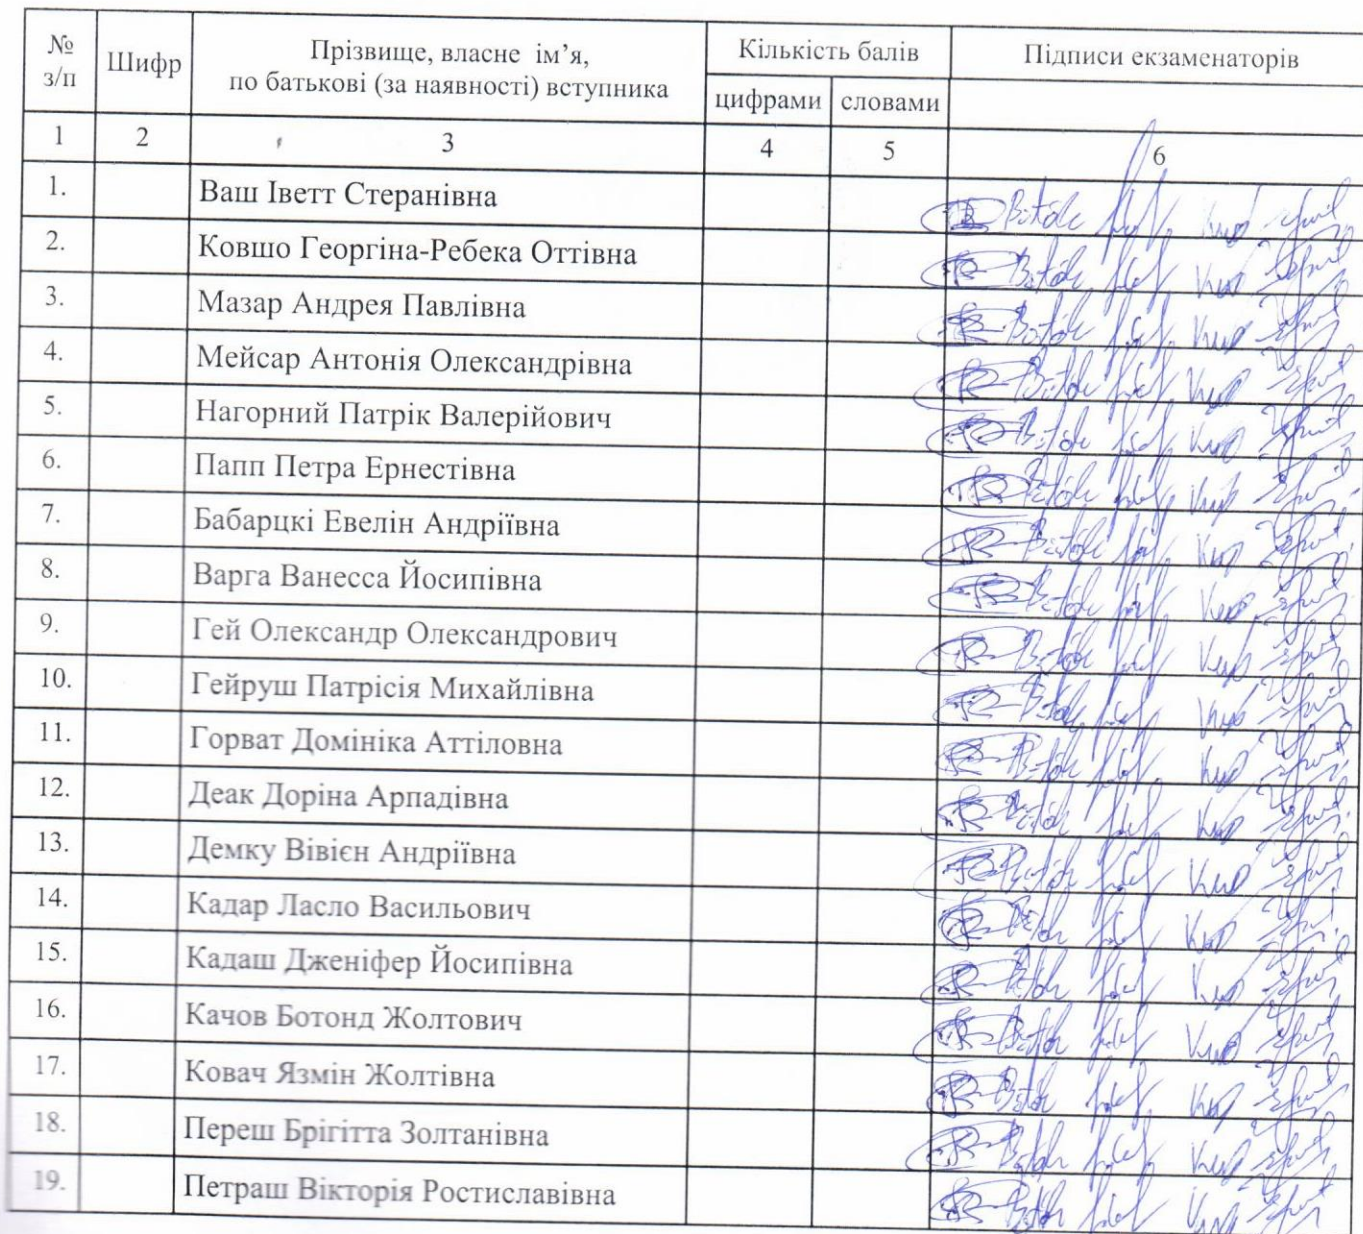 № з/п Шифр Прізвище, власне ім’я, по батькові (за наявності) вступника Кількість балів Підписи екзаменаторів
цифрами словами
1 2 3 4 5 6
1. Ваш Іветт Стеранівна
2. Ковшо Георгіна-Ребека Оттівна
3. Мазар Андрея Павлівна
4. Мейсар Антонія Олександрівна
5. Нагорний Патрік Валерійович
6. Папп Петра Ернестівна
7. Бабарцкі Евелін Андріївна
8. Варга Ванесса Йосипівна
9. Гей Олександр Олександрович
10. Гейруш Патрісія Михайлівна
11. Горват Домініка Аттіловна
12. Деак Доріна Арпадівна
13. Демку Вівієн Андріївна
14. Кадар Ласло Васильович
15. Кадаш Дженіфер Йосипівна
16. Качов Ботонд Жолтович
17. Ковач Язмін Жолтівна
18. Переш Брігітта Золтанівна
19. Петраш Вікторія Ростиславівна